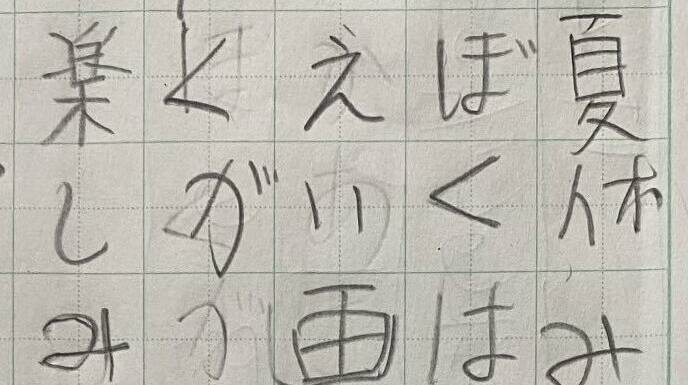 夏休み
ぼくは
えい画
くが
楽しみ